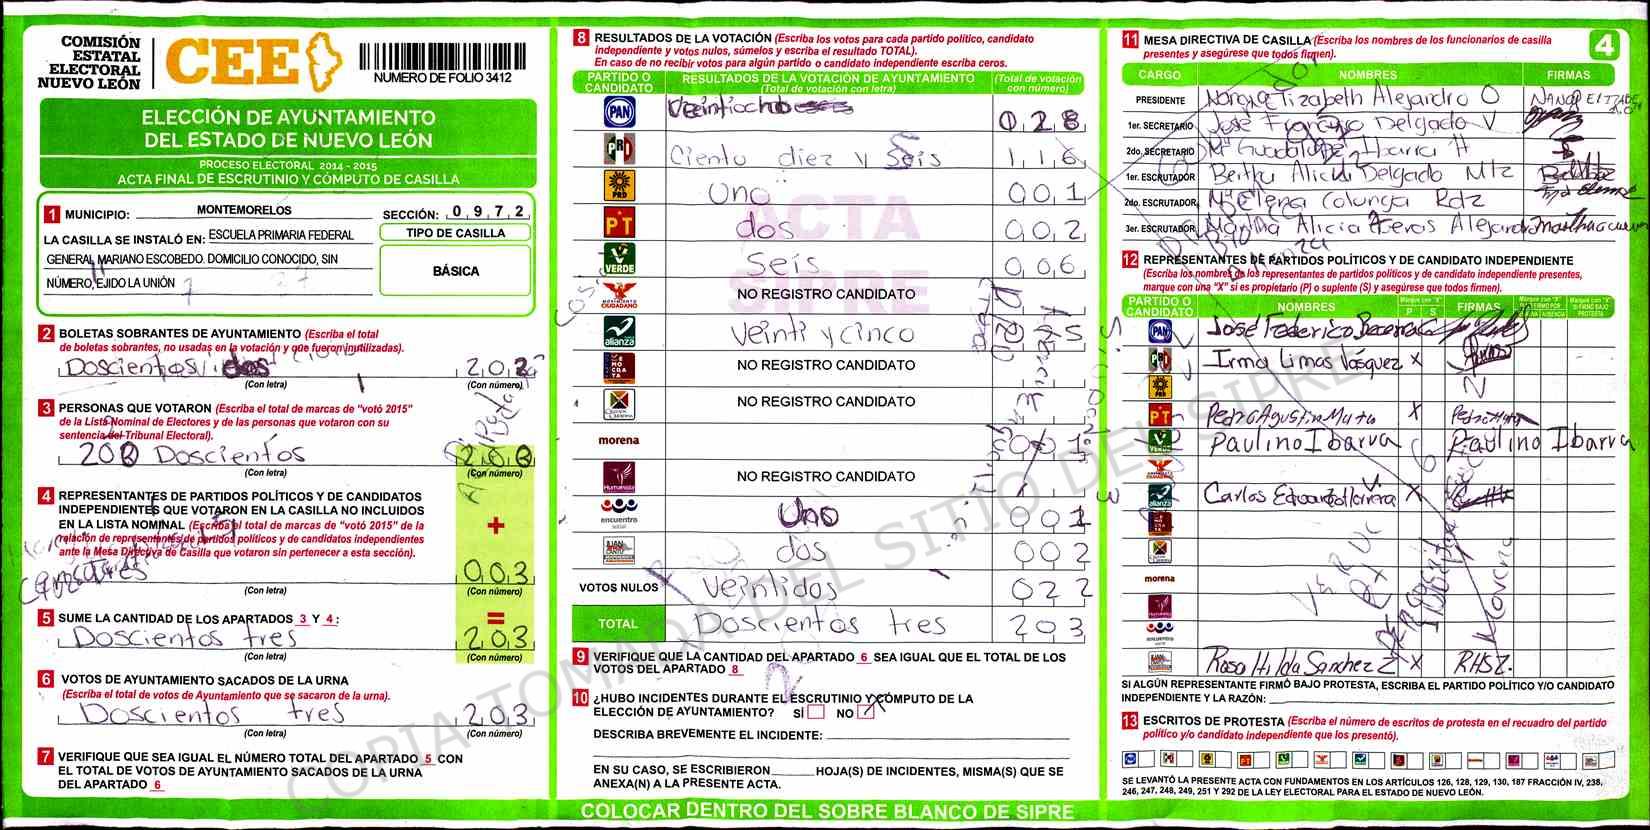 COMISIÓN
ESTATAL
ELECTORAL
NUEVO LEÓN
CEE
NUMERO DE FOLIO 3412
ELECCIÓN DE AYUNTAMIENTO
DEL ESTADO DE NUEVO LEÓN
PROCESO ELECTORAL 2014 - 2015
ACTA FINAL DE ESCRUTINIO Y CÓMPUTO DE CASILLA
1 MUNICIPIO: MONTEMORELOS SECCIÓN: 0 9 7 2
LA CASILLA SE INSTALÓ EN: ESCUELA PRIMARIA FEDERAL
GENERAL MARIANO ESCOBEDO. DOMICILIO CONOCIDO, SIN
NÚMERO, EJIDO LA UNIÓN
TIPO DE CASILLA
BÁSICA
2 BOLETAS SOBRANTES DE AYUNTAMIENTO (Escriba el total
de boletas sobrantes, no usadas en la votación y que fueron inutilizadas).
Doscientos dos 2 0 2
(Con letra) (Con número)
3 PERSONAS QUE VOTARON (Escriba el total de marcas de "votó 2015"
de la Lista Nominal de Electores y de las personas que votaron con su
sentencia del Tribunal Electoral).
200 Doscientos 2 0 0
(Con letra) (Con número)
4 REPRESENTANTES DE PARTIDOS POLÍTICOS Y DE CANDIDATOS
INDEPENDIENTES QUE VOTARON EN LA CASILLA NO INCLUIDOS
EN LA LISTA NOMINAL (Escriba el total de marcas de "votó 2015" de la
relación de representantes de partidos políticos y de candidatos independientes
ante la Mesa Directiva de Casilla que votaron sin pertenecer a esta sección).
+
tres 0 0 3
(Con letra) (Con número)
5 SUME LA CANTIDAD DE LOS APARTADOS 3 Y 4:
=
Doscientos tres 2 0 3
(Con letra) (Con número)
6 VOTOS DE AYUNTAMIENTO SACADOS DE LA URNA
(Escriba el total de votos de Ayuntamiento que se sacaron de la urna).
Doscientos tres 2 0 3
(Con letra) (Con número)
7 VERIFIQUE QUE SEA IGUAL EL NÚMERO TOTAL DEL APARTADO 5 CON
EL TOTAL DE VOTOS DE AYUNTAMIENTO SACADOS DE LA URNA
DEL APARTADO 6
8 RESULTADOS DE LA VOTACIÓN (Escriba los votos para cada partido político, candidato
independiente y votos nulos, súmelos y escriba el resultado TOTAL).
En caso de no recibir votos para algún partido o candidato independiente escriba ceros.
PARTIDO O CANDIDATO
RESULTADOS DE LA VOTACIÓN DE AYUNTAMIENTO
(Total de votación con letra)
(Total de votación con número)
PAN Veintiocho 0 2 8
PRI Ciento diez y Seis 1 1 6
PRD Uno 0 0 1
PT dos 0 0 2
VERDE Seis 0 0 6
MOVIMIENTO CIUDADANO NO REGISTRO CANDIDATO
alianza Veinti y cinco 0 2 5
NO REGISTRO CANDIDATO
NO REGISTRO CANDIDATO
morena 0 0 1
Humanista NO REGISTRO CANDIDATO
encuentro social Uno 0 0 1
dos 0 0 2
VOTOS NULOS Veintidos 0 2 2
TOTAL Doscientos tres 2 0 3
ACTA
SIPRE
9 VERIFIQUE QUE LA CANTIDAD DEL APARTADO 6 SEA IGUAL QUE EL TOTAL DE LOS
VOTOS DEL APARTADO 8
10 ¿HUBO INCIDENTES DURANTE EL ESCRUTINIO Y CÓMPUTO DE LA
ELECCIÓN DE AYUNTAMIENTO? SÍ NO X
DESCRIBA BREVEMENTE EL INCIDENTE:
EN SU CASO, SE ESCRIBIERON HOJA(S) DE INCIDENTES, MISMA(S) QUE SE
ANEXA(N) A LA PRESENTE ACTA.
COLOCAR DENTRO DEL SOBRE BLANCO DE SIPRE
11 MESA DIRECTIVA DE CASILLA (Escriba los nombres de los funcionarios de casilla
presentes y asegúrese que todos firmen).
4
CARGO NOMBRES FIRMAS
PRESIDENTE Norma Elizabeth Alejandro O
1er. SECRETARIO José Francisco Delgado V
2do. SECRETARIO Mª Guadalupe Ibarra H
1er. ESCRUTADOR Bertha Alicia Delgado Mtz
2do. ESCRUTADOR Mª Elena Colunga Rdz
3er. ESCRUTADOR Martha Alicia Cuevas Alejandro
12 REPRESENTANTES DE PARTIDOS POLÍTICOS Y DE CANDIDATO INDEPENDIENTE
(Escriba los nombres de los representantes de partidos políticos y de candidato independiente presentes,
marque con una "X" si es propietario (P) o suplente (S) y asegúrese que todos firmen).
PARTIDO O CANDIDATO NOMBRES P S FIRMAS
PAN José Federico Becerra
PRI Irma Limas Vásquez X
PRD
PT Pedro Agustin Mata X
VERDE Paulino Ibarra Paulino Ibarra
alianza Carlos Eduardo Herrera X
morena
Rosa Hilda Sanchez Z X RHSZ.
SI ALGÚN REPRESENTANTE FIRMÓ BAJO PROTESTA, ESCRIBA EL PARTIDO POLÍTICO Y/O CANDIDATO
INDEPENDIENTE Y LA RAZÓN:
13 ESCRITOS DE PROTESTA (Escriba el número de escritos de protesta en el recuadro del partido
político y/o candidato independiente que los presentó).
SE LEVANTÓ LA PRESENTE ACTA CON FUNDAMENTOS EN LOS ARTÍCULOS 126, 128, 129, 130, 187 FRACCIÓN IV, 238,
246, 247, 248, 249, 251 Y 292 DE LA LEY ELECTORAL PARA EL ESTADO DE NUEVO LEÓN.
COPIA TOMADA DEL SITIO DEL SIPRE